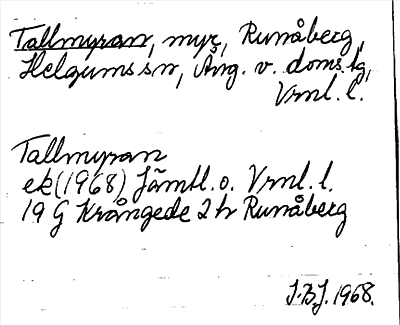 Tallmyran, myr, Runåberg,
Helgums sn, Ång. v. doms.tg,
Vrnl. l.
Tallmyran
ek (1968) Jämtl. o. Vrnl. l.
19 G Krångede 2 h Runåberg
J.B.J. 1968.